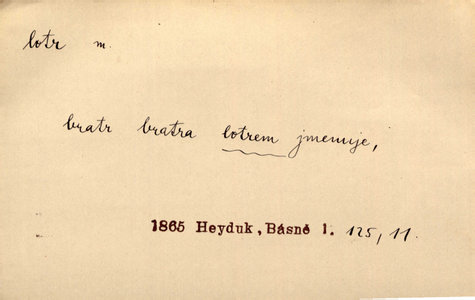 lotr m.
bratr bratra lotrem jmenuje,
1865 Heyduk, Básně 1. 125, 11.